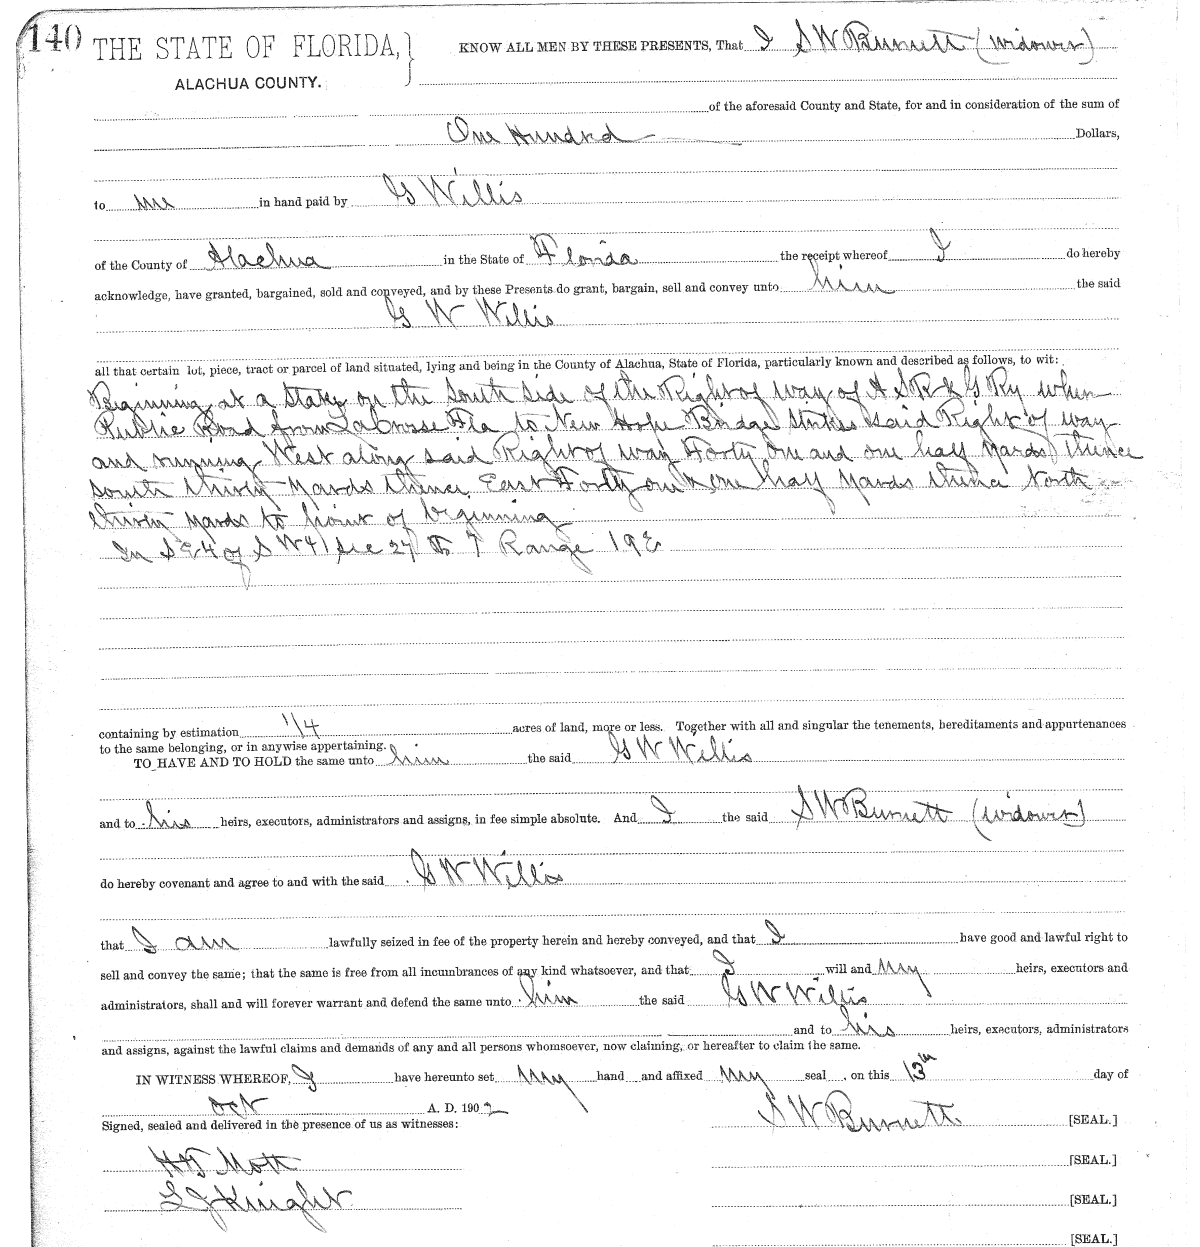 140
THE STATE OF FLORIDA,
ALACHUA COUNTY.
KNOW ALL MEN BY THESE PRESENTS, That I S W Burnett (widower)
of the aforesaid County and State, for and in consideration of the sum of
One Hundred Dollars,
to me in hand paid by G Willis
of the County of Alachua in the State of Florida the receipt whereof I do hereby
acknowledge, have granted, bargained, sold and conveyed, and by these Presents do grant, bargain, sell and convey unto him the said
G W Willis
all that certain lot, piece, tract or parcel of land situated, lying and being in the County of Alachua, State of Florida, particularly known and described as follows, to wit:
Beginning at a Stake on the South side of the Right of way of A S R & G Ry when
Public Road from LaCrosse Fla to New Hope Bridge strikes said Right of way
and running West along said Right of way Forty one and one half yards thence
South thirty yards thence East Forty one & one half yards thence North
thirty yards to point of beginning
In S E 4 of S W 4 Sec 27 T 7 Range 19 E
containing by estimation 1/4 acres of land, more or less. Together with all and singular the tenements, hereditaments and appurtenances
to the same belonging, or in anywise appertaining.
TO HAVE AND TO HOLD the same unto him the said G W Willis
and to his heirs, executors, administrators and assigns, in fee simple absolute. And I the said S W Burnett (widower)
do hereby covenant and agree to and with the said G W Willis
that I am lawfully seized in fee of the property herein and hereby conveyed, and that I have good and lawful right to
sell and convey the same; that the same is free from all incumbrances of any kind whatsoever, and that I will and my heirs, executors and
administrators, shall and will forever warrant and defend the same unto him the said G W Willis
and to his heirs, executors, administrators
and assigns, against the lawful claims and demands of any and all persons whomsoever, now claiming, or hereafter to claim the same.
IN WITNESS WHEREOF, I have hereunto set my hand and affixed my seal, on this 13th day of
Oct A. D. 1902
S W Burnett [SEAL.]
Signed, sealed and delivered in the presence of us as witnesses:
Mott [SEAL.]
L J Knight [SEAL.]
[SEAL.]